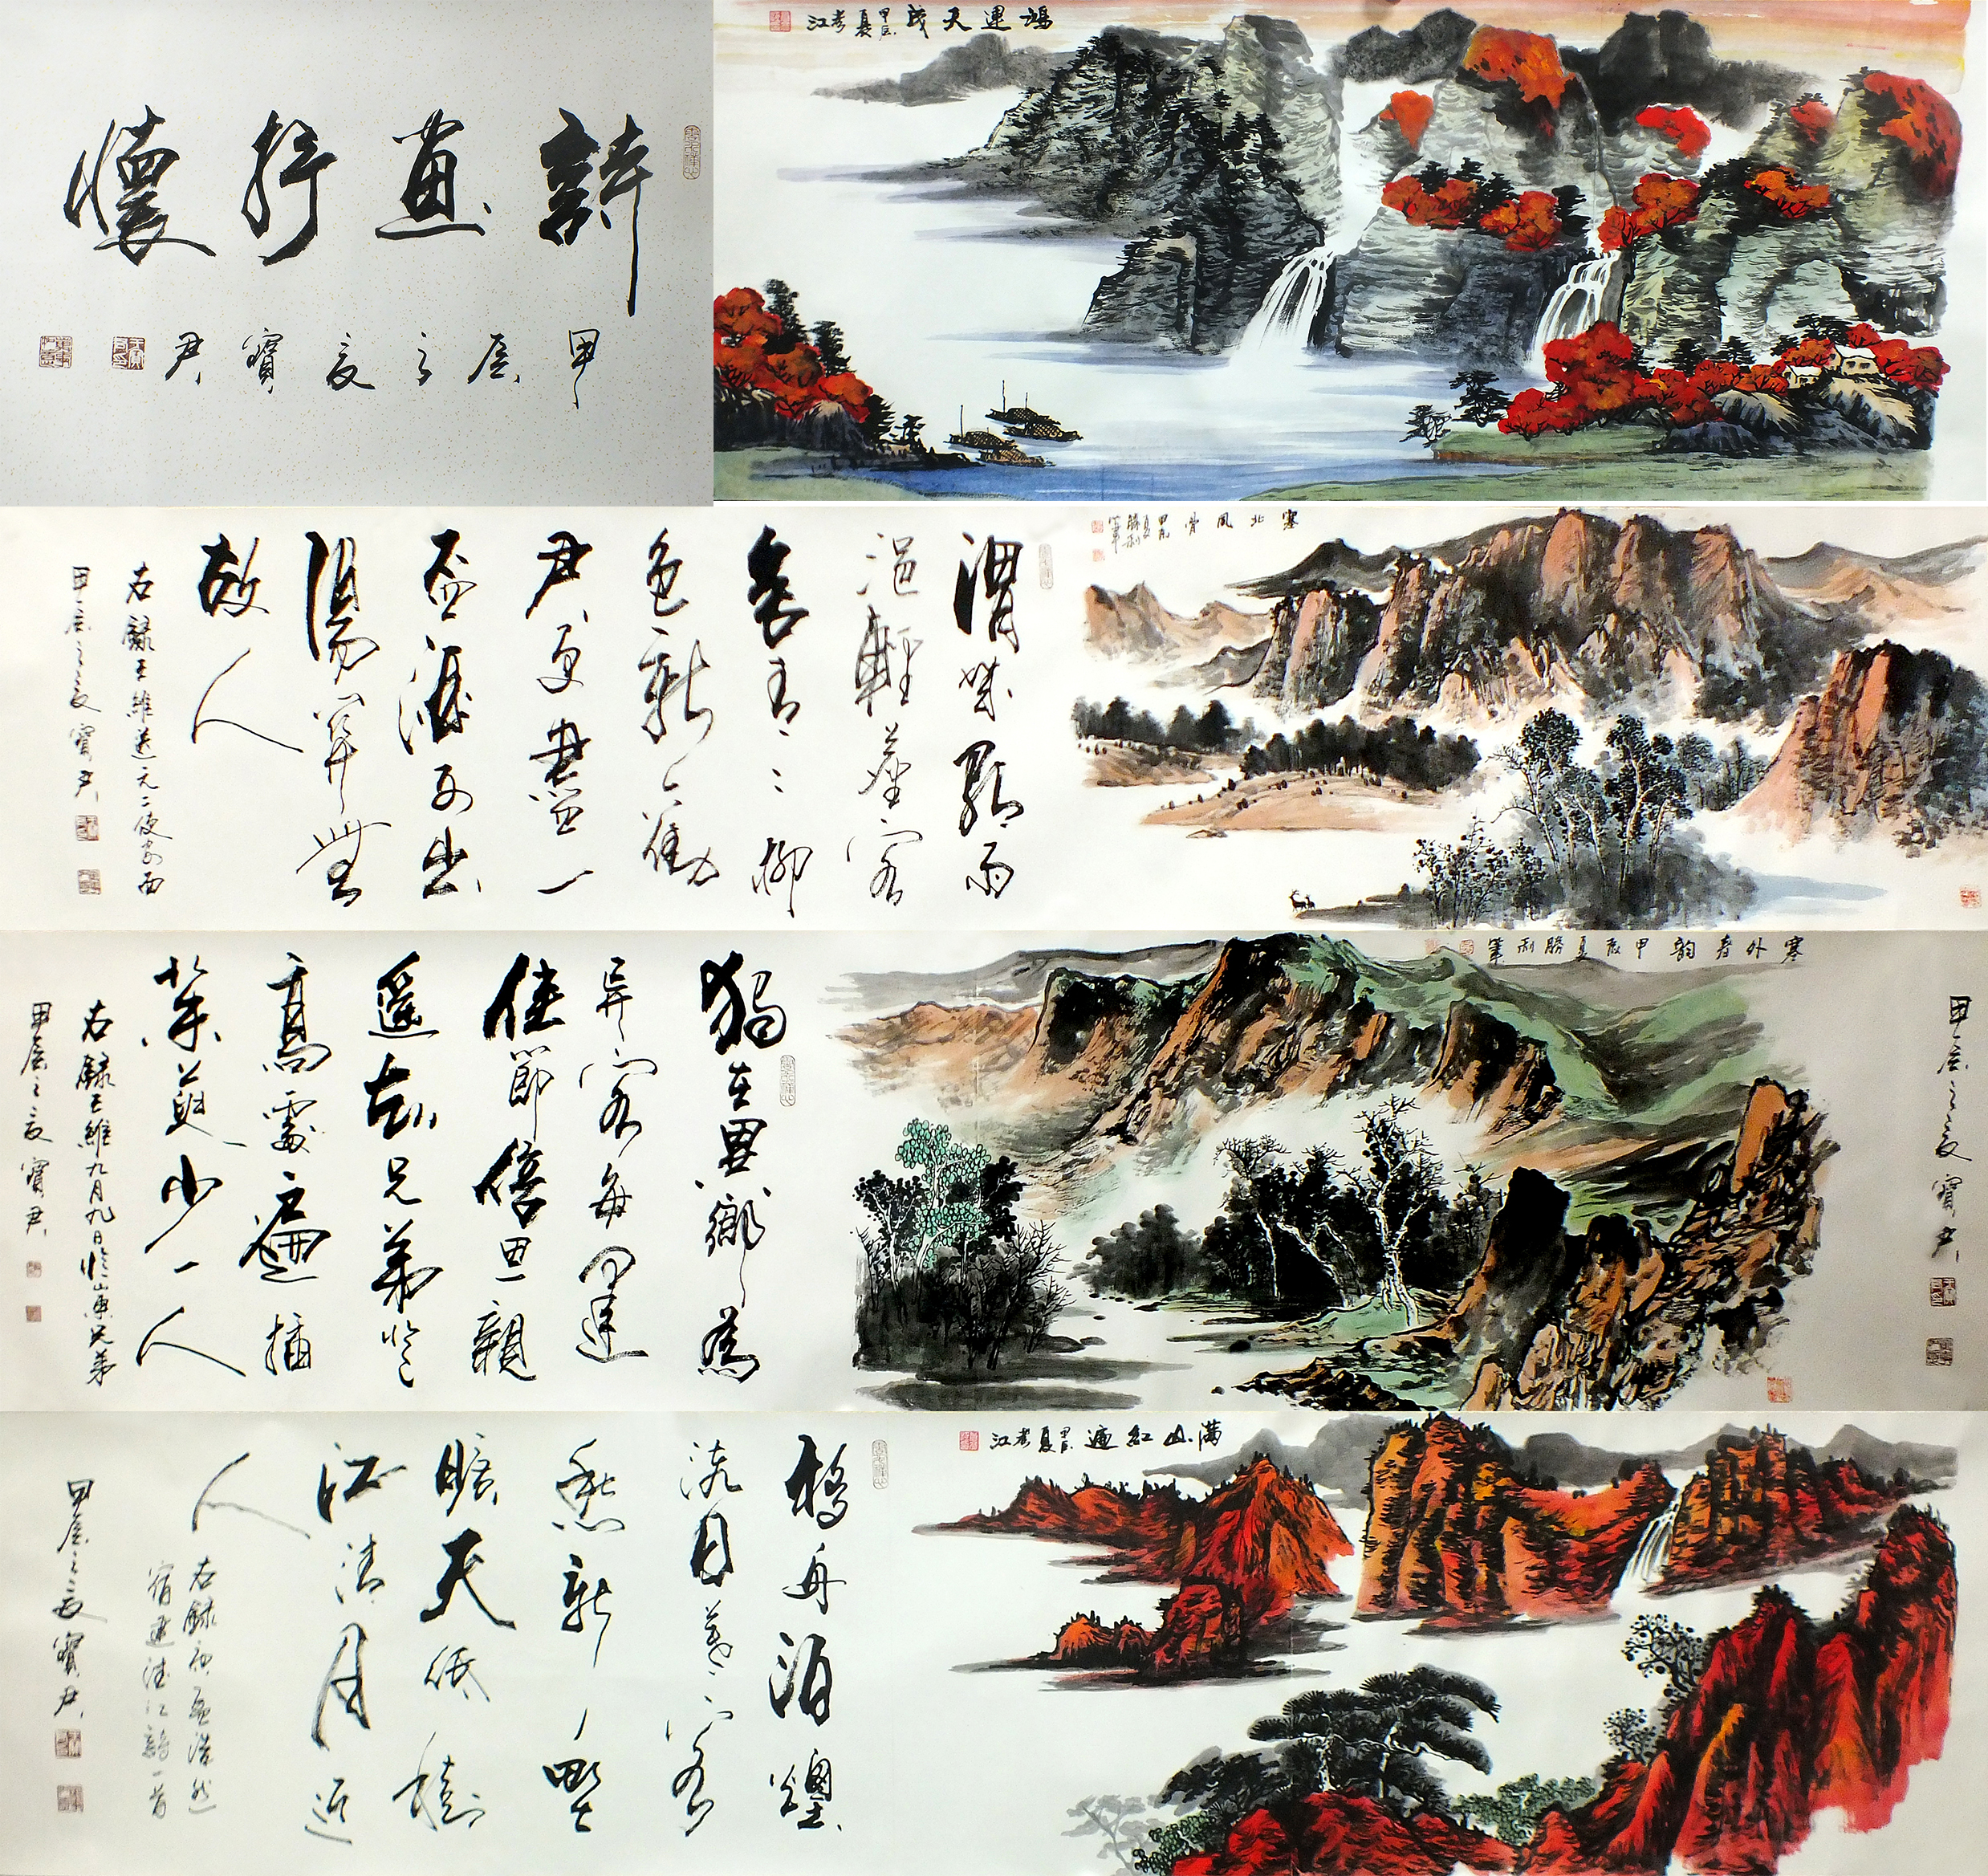 詩畫抒懷
甲辰之夏寶君
鴻運天成 甲辰夏
塞北風骨 甲辰夏勝利筆
渭城朝雨
浥輕塵客
舍青々柳
色新勸
君更盡一
盃酒西出
陽關無
故人
右錄王維送元二使安西
甲辰之夏寶君
甲辰之夏寶君
塞外春韵 甲辰夏勝利筆
獨在異鄉為
異客每逢
佳節倍思親
遙知兄弟登
高處遍插
茱萸少一人
右錄王維九月九日憶山東兄弟
甲辰之夏寶君
满山红遍 甲辰夏
移舟泊煙
渚日暮客
愁新野
曠天低樹
江清月近
人
右錄孟浩然
宿建德江詩一首
甲辰之夏寶君